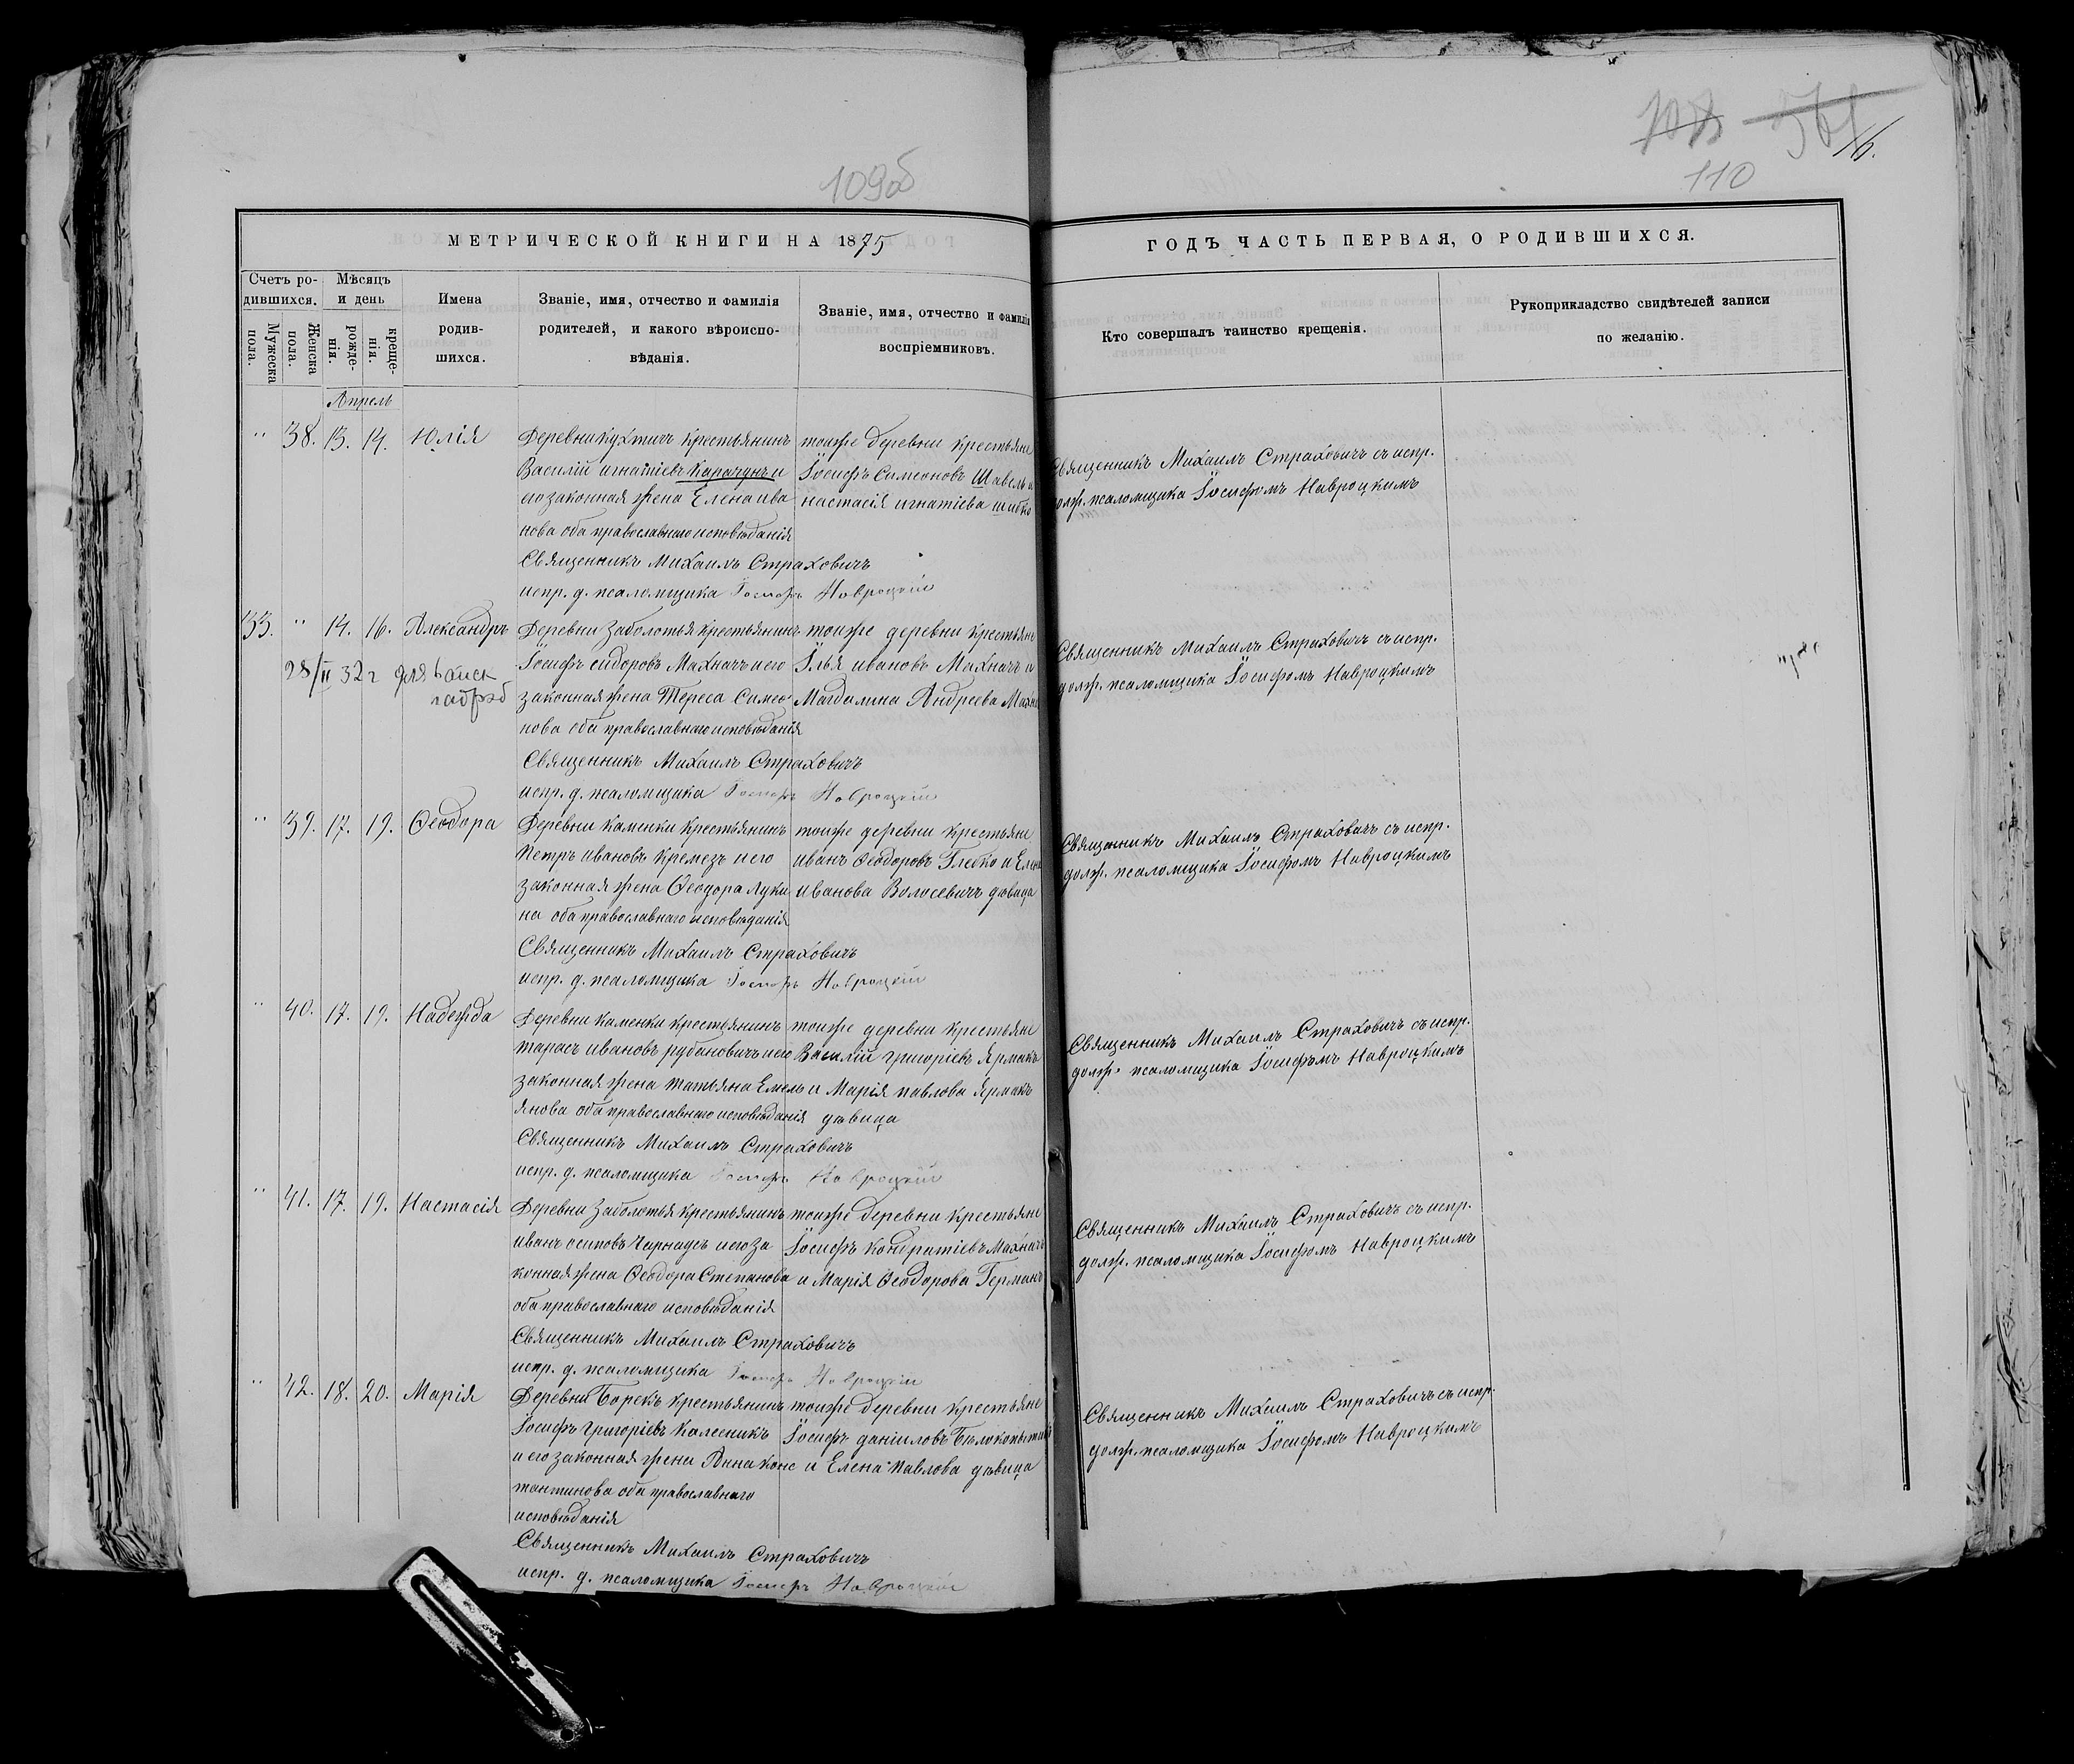 109об
110
МЕТРИЧЕСКОЙ КНИГИ НА 1875
ГОДЪ ЧАСТЬ ПЕРВАЯ, О РОДИВШИХСЯ.
Счетъ ро-
дившихся.
Мужеска
пола.
Женска
пола.
Мѣсяцъ
и день
рожде-
нія.
креще-
нія.
Имена
родив-
шихся.
Званіе, имя, отчество и фамилія
родителей, и какого вѣроиспо-
вѣданія.
Званіе, имя, отчество и фамилія
воспріемниковъ.
Кто совершалъ таинство крещенія.
Рукоприкладство свидѣтелей записи
по желанію.
Апрель
" 38. 13. 14. Юлія
Деревни Кухтичъ крестьянинъ
Василій игнатіевъ Карачунъ и
его законная жена Елена ива
нова оба православнаго исповѣданія
тойже деревни крестьяне
Іосифъ Симеоновъ Шавель и
настасія игнатіева шибко
Священникъ Михаилъ Страховичъ съ испр.
долж. псаломщика Іосифомъ Навроцкимъ
Священникъ Михаилъ Страховичъ
испр. д. псаломщика Іосифъ Навроцкій
33. " 14. 16. Александръ
28/II 32г для войск
Деревни Заболотья крестьянинъ
Іосифъ сидоровъ Махначъ и его
законная жена Тереса Симео
нова оба православнаго исповѣданія
тойже деревни крестьяне
Илья ивановъ Махначъ и
Магдалина Андреева Махна
Священникъ Михаилъ Страховичъ съ испр.
долж. псаломщика Іосифомъ Навроцкимъ
Священникъ Михаилъ Страховичъ
испр. д. псаломщика Іосифъ Навроцкій
" 39. 17. 19. Ѳеодора
Деревни Каменки крестьянинъ
Петръ ивановъ Кремезъ и его
законная жена Ѳеодора Луки
на оба православнаго исповѣданія
тойже деревни крестьяне
иванъ Ѳеодоровъ Глебко и Елена
иванова Волосевичъ дѣвица
Священникъ Михаилъ Страховичъ съ испр.
долж. псаломщика Іосифомъ Навроцкимъ
Священникъ Михаилъ Страховичъ
испр. д. псаломщика Іосифъ Навроцкій
" 40. 17. 19. Надежда
Деревни Каменки крестьянинъ
тарасъ ивановъ рубановичъ и его
законная жена татьяна Емель
янова оба православнаго исповѣданія
тойже деревни крестьяне
Василій григоріевъ Ярмакъ
и Марія павлова Ярмакъ
дѣвица
Священникъ Михаилъ Страховичъ съ испр.
долж. псаломщика Іосифъмъ Навроцкимъ
Священникъ Михаилъ Страховичъ
испр. д. псаломщика Іосифъ Навроцкій
" 41. 17. 19. Настасія
Деревни Заболотья крестьянинъ
иванъ осиповъ Чарнаусъ и его за
конная жена Ѳеодора Степанова
оба православнаго исповѣданія
тойже деревни крестьяне
Іосифъ кондратіевъ Махначъ
и Марія Ѳеодорова Германъ
Священникъ Михаилъ Страховичъ съ испр.
долж. псаломщика Іосифомъ Навроцкимъ
Священникъ Михаилъ Страховичъ
испр. д. псаломщика Іосифъ Навроцкій
" 42. 18. 20. Марія
Деревни Борекъ крестьянинъ
Іосифъ григоріевъ Калесникъ
и его законная жена Анна конс
тантинова оба православнаго
исповѣданія
тойже деревни крестьяне
Іосифъ даніиловъ Бѣлокопытый
и Елена павлова дѣвица
Священникъ Михаилъ Страховичъ съ испр.
долж. псаломщика Іосифомъ Навроцкимъ
Священникъ Михаилъ Страховичъ
испр. д. псаломщика Іосифъ Навроцкій